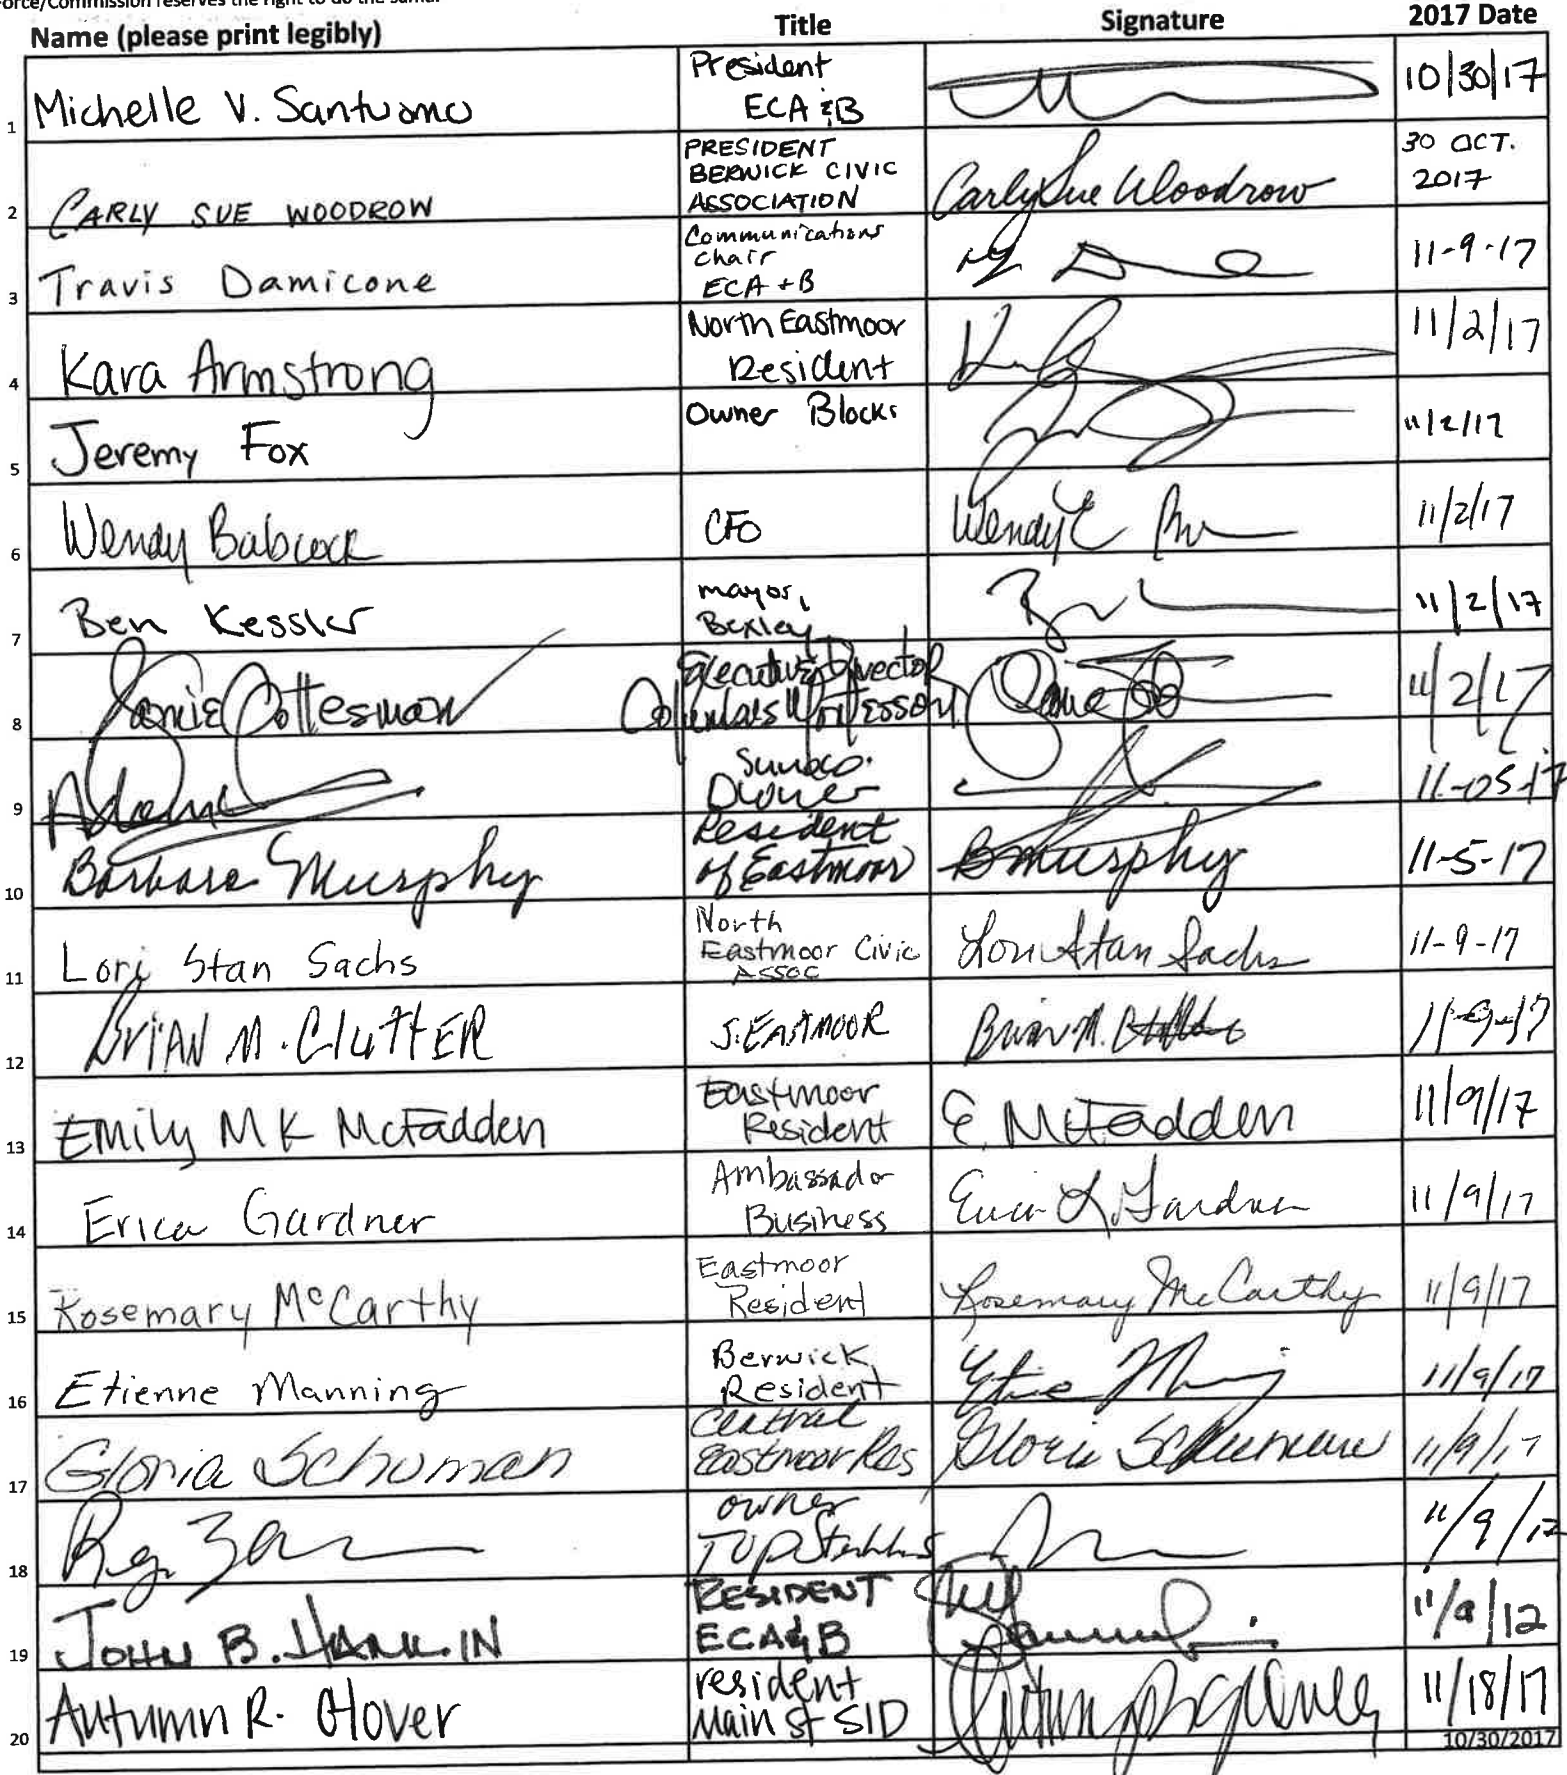 Force/Commission reserves the right to do the same.
Name (please print legibly) Title Signature 2017 Date
1 Michelle V. Santuomo President ECA & B 10/30/17
2 CARLY SUE WOODROW PRESIDENT BERWICK CIVIC ASSOCIATION Carly Sue Woodrow 30 OCT. 2017
3 Travis Damicone Communications Chair ECA + B 11-9-17
4 Kara Armstrong North Eastmoor Resident 11/2/17
5 Jeremy Fox Owner Blocks 11/2/17
6 Wendy Babcock CFO Wendy E 11/2/17
7 Ben Kessler mayor, Bexley 11/2/17
8 Jamie Gottesman Executive Director 11/2/17
9 Adam Sunoco Owner 11-05-17
10 Barbara Murphy Resident of Eastmoor B Murphy 11-5-17
11 Lori Stan Sachs North Eastmoor Civic Assoc Lori Stan Sachs 11-9-17
12 BRIAN M. ClutTER S. EASTMOOR Brian M. 11-9-17
13 Emily MK McFadden Eastmoor Resident E. McFadden 11/9/17
14 Erica Gardner Ambassador Business Erica L. Gardner 11/9/17
15 Rosemary McCarthy Eastmoor Resident Rosemary McCarthy 11/9/17
16 Etienne Manning Berwick Resident 11/9/17
17 Gloria Schuman Central Eastmoor Res Gloria Schuman 11/9/17
18 owner 11/9/12
19 JOHN B. HANKIN RESIDENT ECA & B 11/9/12
20 Autumn R. Glover resident Main St SID Autumn R Glover 11/18/17
10/30/2017